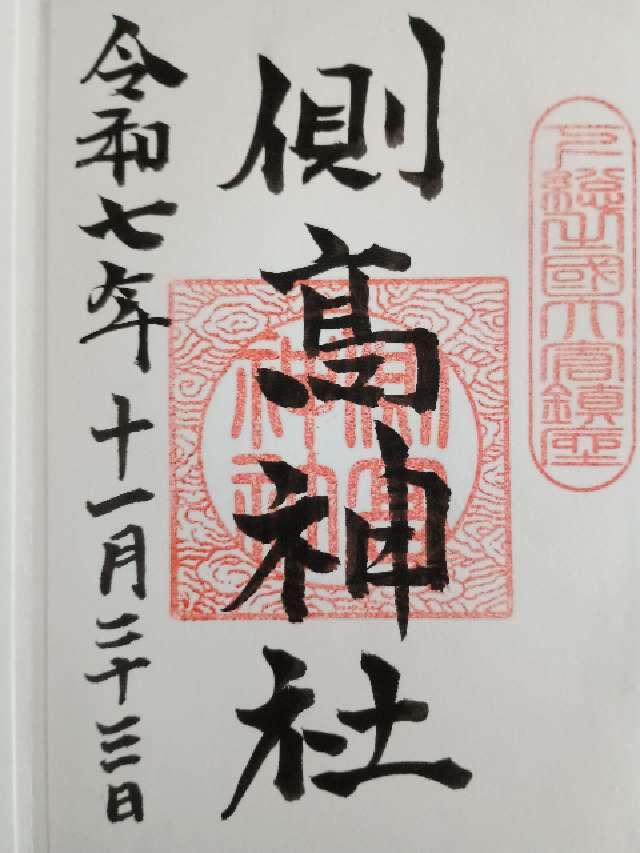 下総之國大倉鎮座
側高神社
側高神社
令和七年十一月二十三日